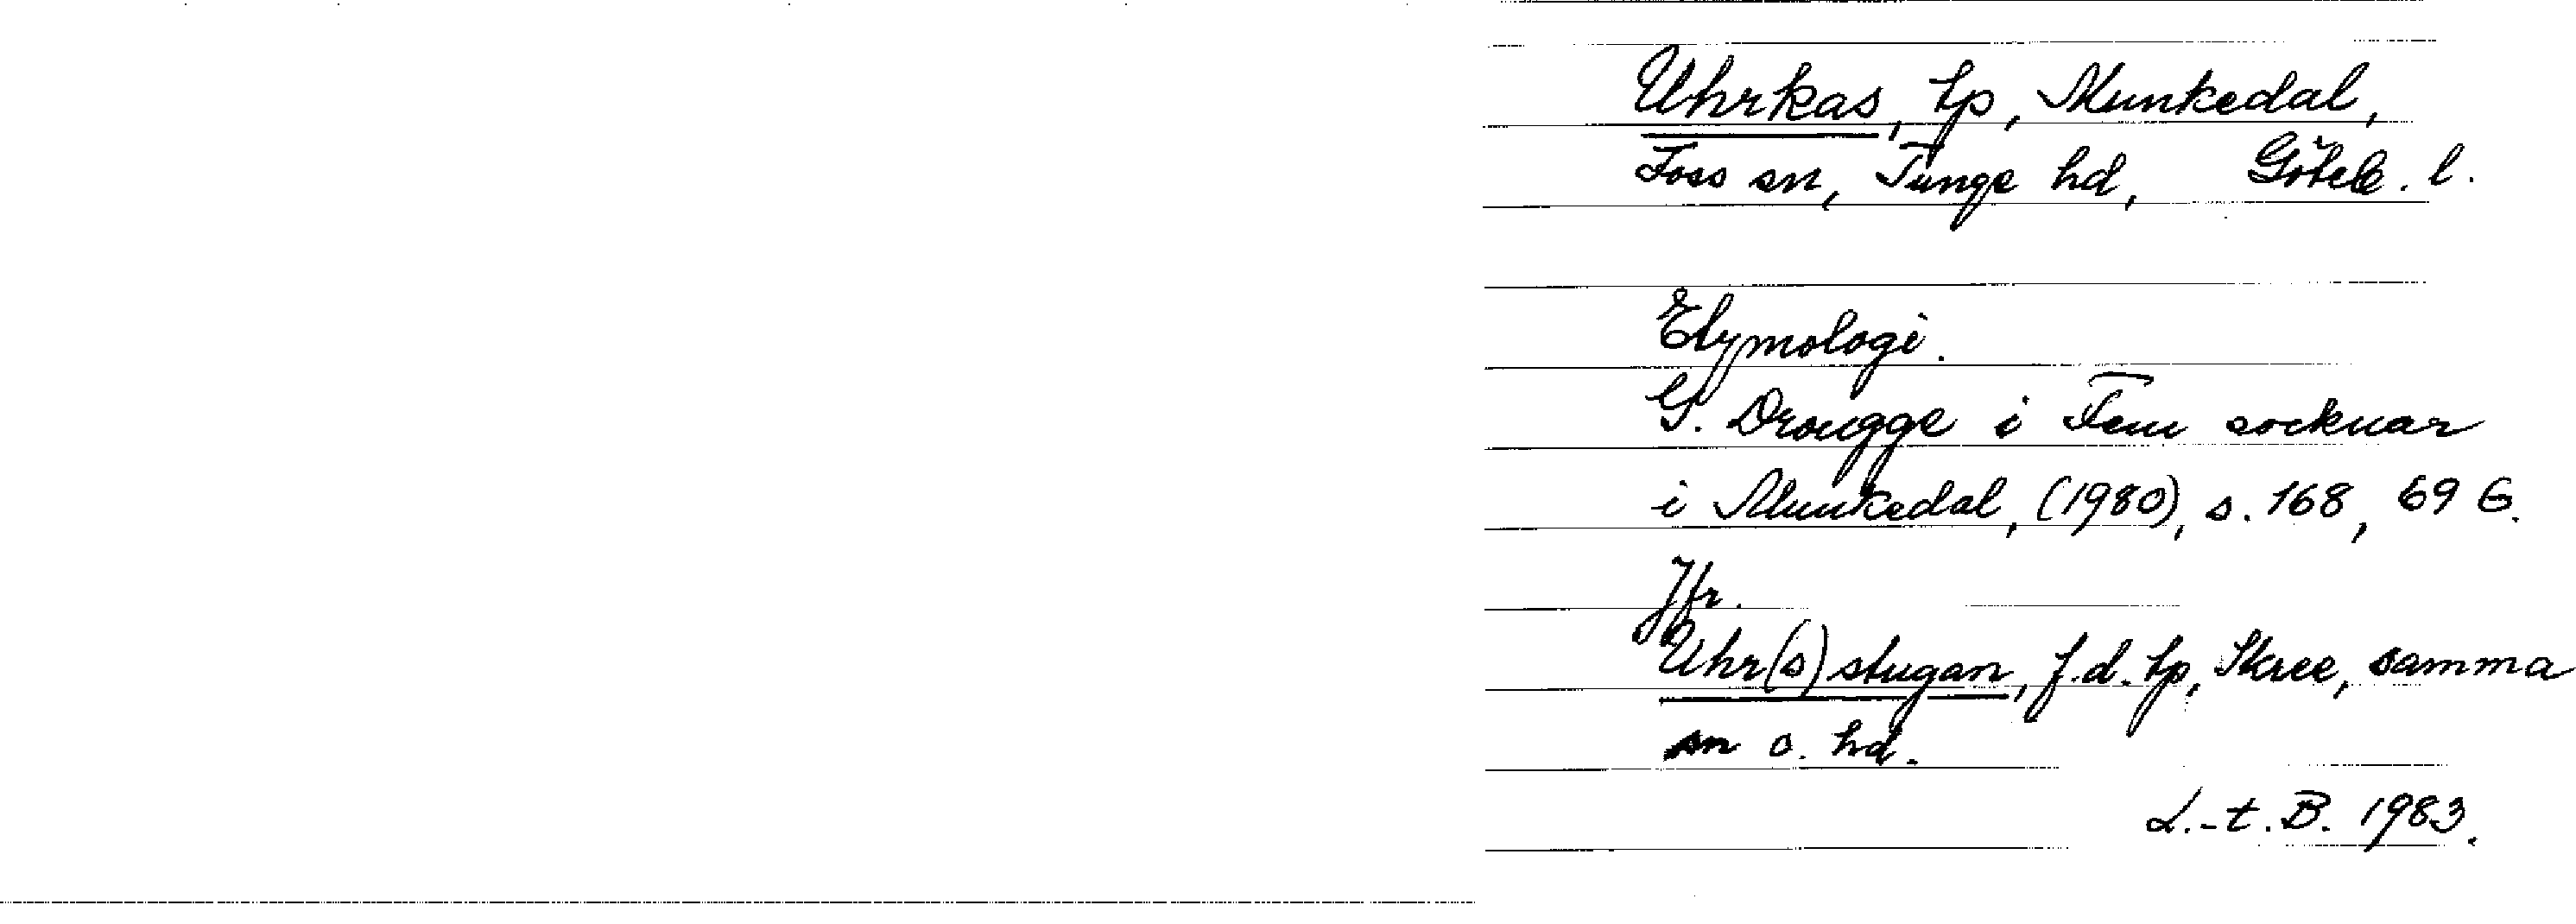 Uhrkas, tp, Munkedal,
Foss sn, Tunge hd, Göteb. l.
Etymologi.
G. Drougge i Fem socknar
i Munkedal, (1980), s. 168, 69 6.
Jfr.
Uhr(s)stugan, f.d. tp, Skree, samma
sn o. hd.
L.-t. B. 1983.